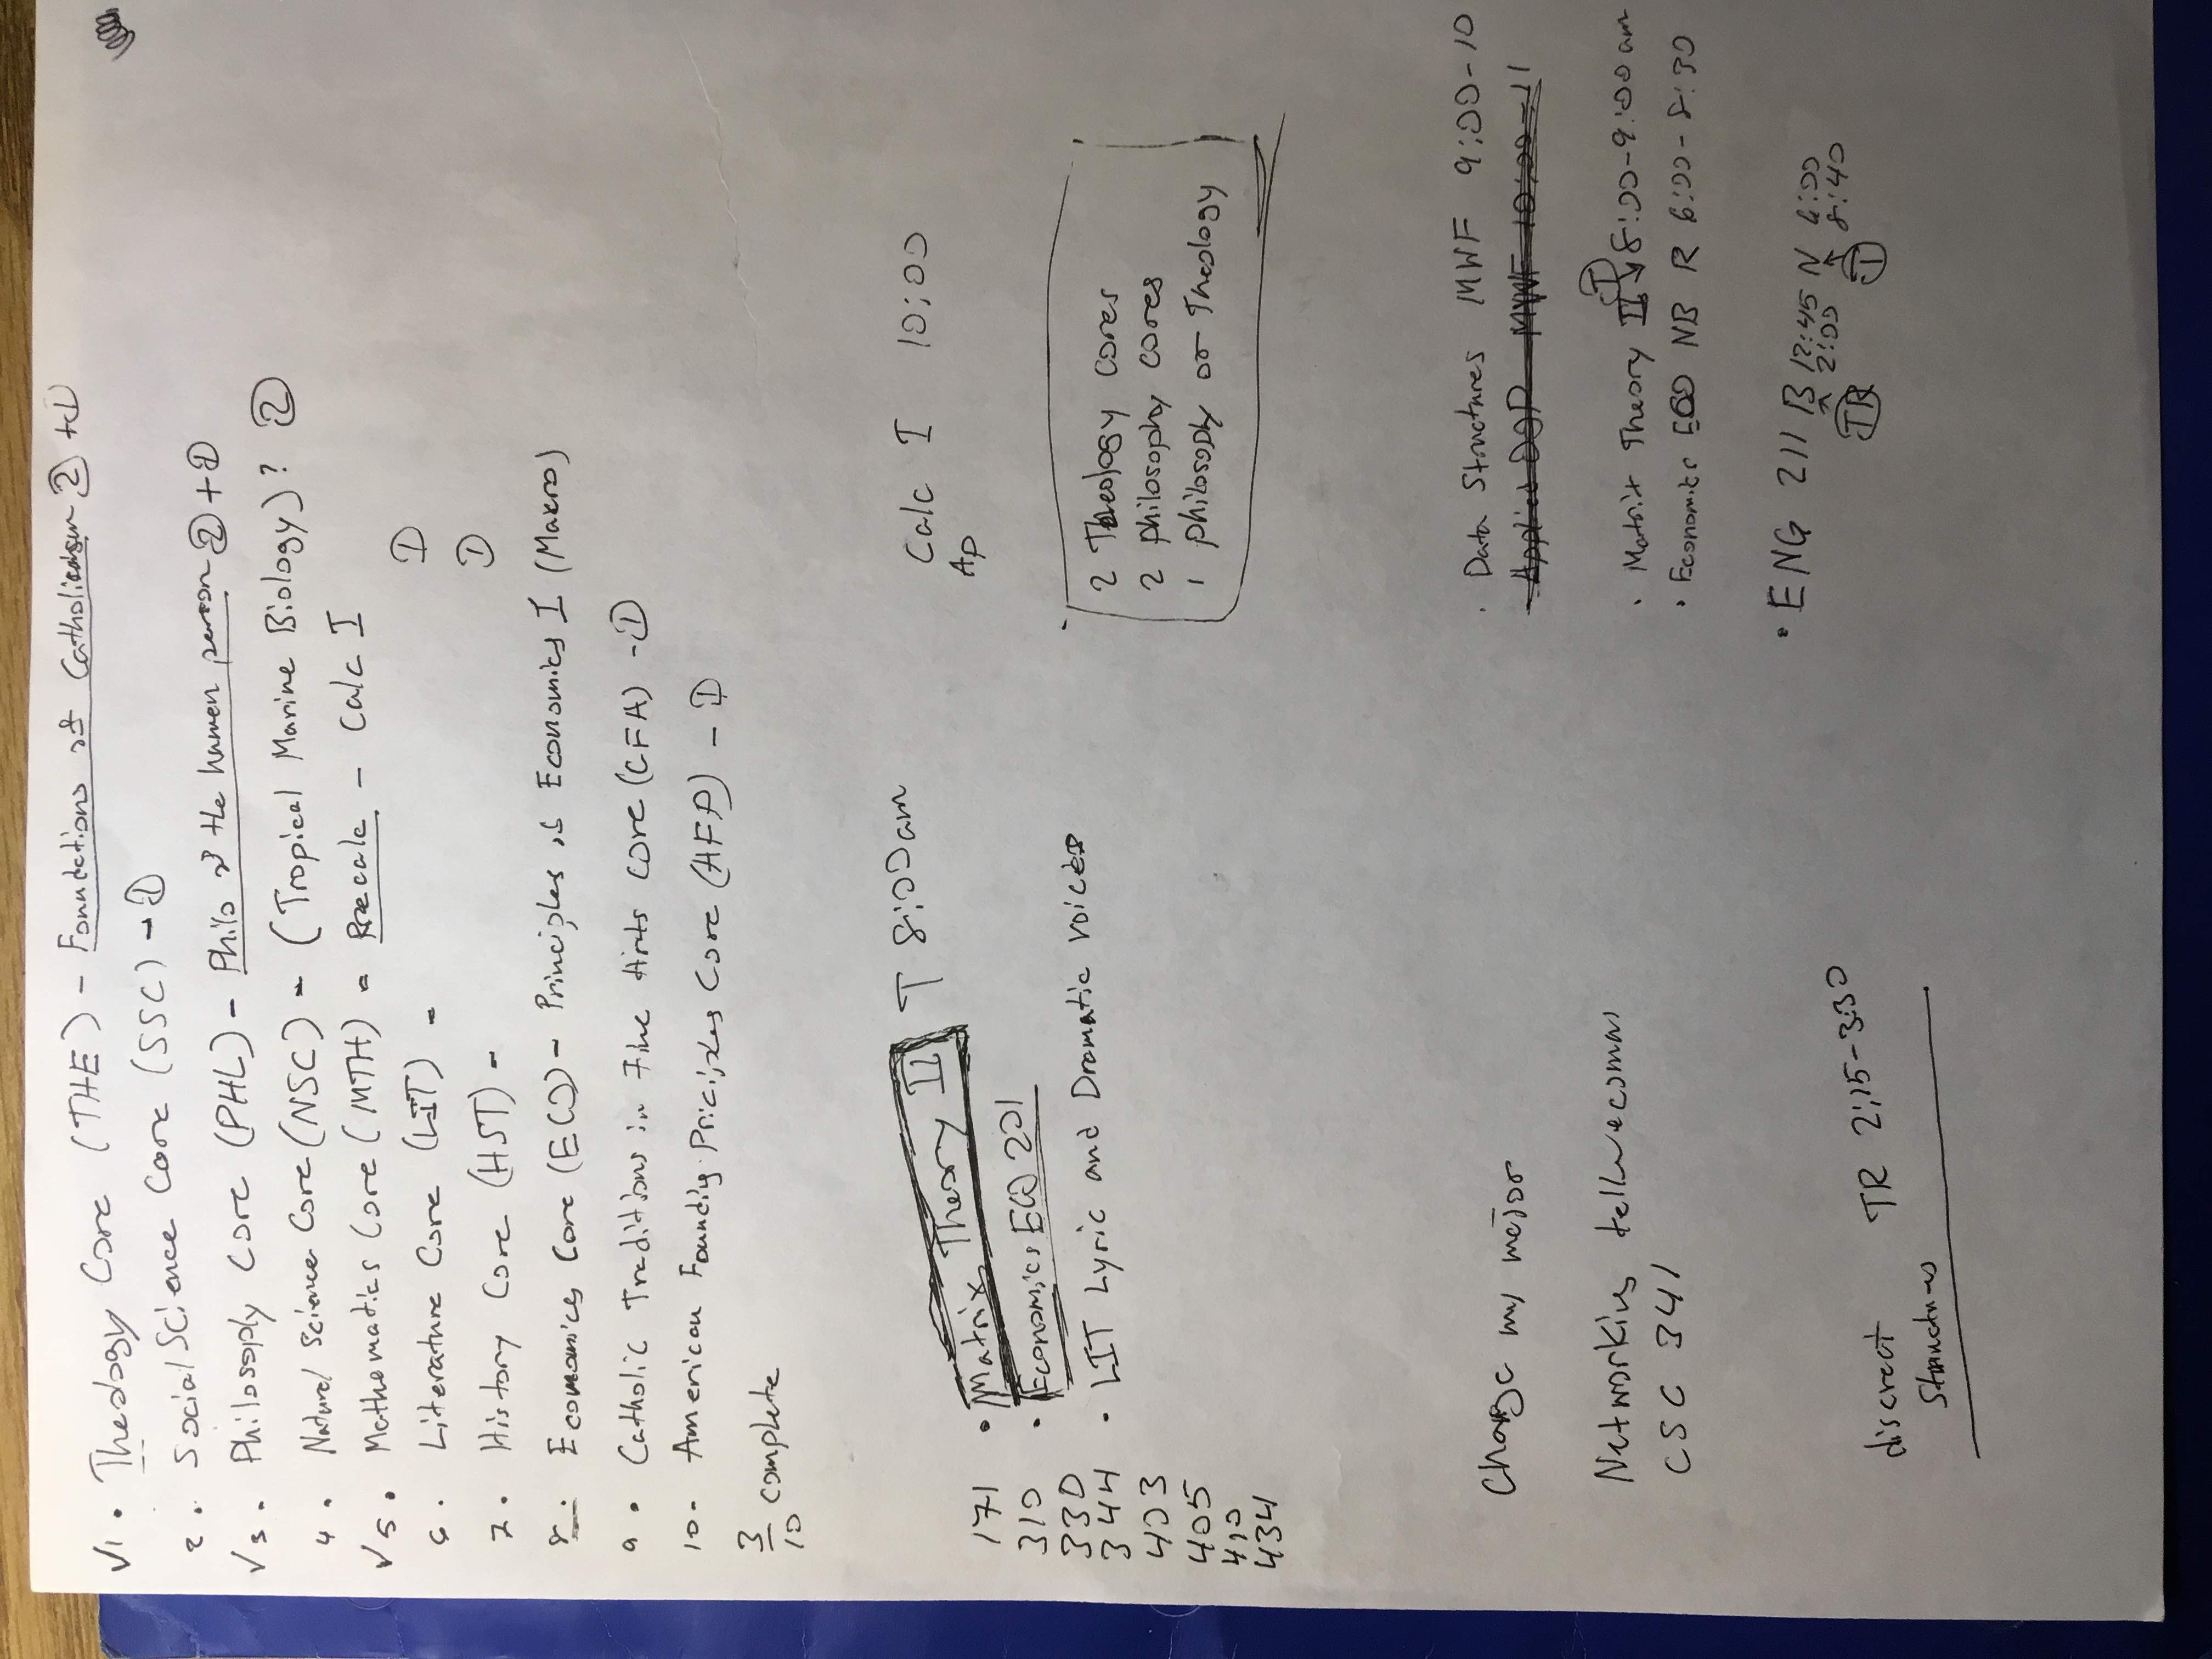 √1. Theology Core (THE) - Foundations of Catholicism ② +①
2. Social Science Core (SSC) - ①
√3. Philosophy Core (PHL) - Philo of the human person ② + ①
4. Natural Science Core (NSC) - (Tropical Marine Biology)? ②
√5. Mathematics Core (MTH) - Precalc - Calc I
6. Literature Core (LIT) - ①
7. History Core (HST) - ①
8. Economics Core (ECO) - Principles of Economics I (Macro)
9. Catholic Traditions in Fine Arts Core (CFA) - ①
10. American Founding Principles Core (AFP) - ①
3/10 complete
• Matrix Theory II T 8:00am
Calc I 10:00
AP
• Economics ECO 201
• LIT Lyric and Dramatic voices
171
310
330
344
403
405
410
434
2 Theology cores
2 philosophy cores
1 philosophy or Theology
Change my major
Networking
CSC 341
• Data Structures MWF 9:00-10
MWF 10:00-11
• Matrix Theory II ① 8:00-9:00am
• Economic ECO NB R 6:00-8:30
• ENG 211 B 12:45 2:00 N 6:00 8:40
TR
discrect Structures TR 2:15-3:30